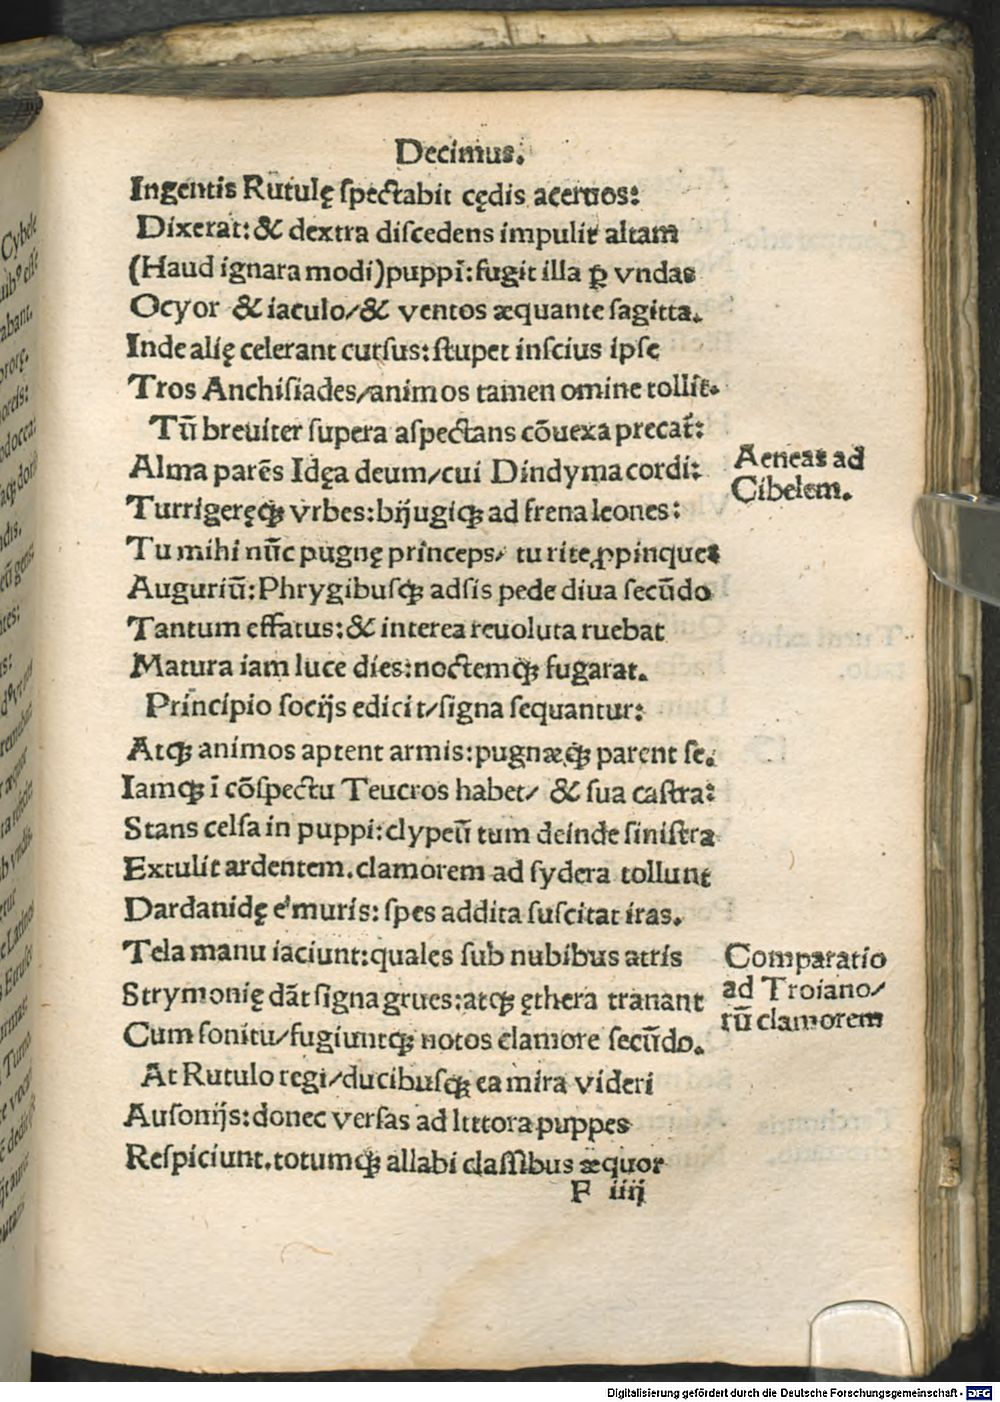 Decimus.
Ingentis Rutulę ſpectabit cędis aceruos:
Dixerat: & dextra diſcedens impulit altam
(Haud ignara modi)puppī:fugit illa ꝑ vndas
Ocyor & iaculo/& ventos æquante ſagitta.
Inde alię celerant curſus:ſtupet inſcius ipſe
Tros Anchiſiades/animos tamen omine tollit.
Tū breuiter ſupera aſpectans cōuexa precat᷑:
Alma parēs Idęa deum/cui Dindyma cordi:
Turrigeręqꝫ vrbes:bijugiqꝫ ad frena leones:
Tu mihi nūc pugnę princeps/ tu rite ꝓpinques
Auguriū:Phrygibuſqꝫ adſis pede diua ſecūdo
Tantum effatus:& interea reuoluta ruebat
Matura iam luce dies:noctemqꝫ fugarat.
Principio ſocijs edicit/ſigna ſequantur:
Atqꝫ animos aptent armis:pugnæqꝫ parent ſe.
Iamqꝫ ī cōſpectu Teucros habet/ & ſua caſtra:
Stans celſa in puppi:clypeū tum deinde ſiniſtra
Extulit ardentem.clamorem ad ſydera tollunt
Dardanidę e muris: ſpes addita ſuſcitat iras.
Tela manu iaciunt:quales ſub nubibus atris
Strymonię dāt ſigna grues:atqꝫ ęthera tranant
Cum ſonitu/fugiuntqꝫ notos clamore ſecūdo.
At Rutulo regi/ducibuſqꝫ ea mira videri
Auſonijs:donec verſas ad littora puppes
Reſpiciunt.totumqꝫ allabi claſſibus æquor
F iiij
Aeneas ad
Cibelem.
Comparatio
ad Troiano/
rū clamorem
Digitalisierung gefördert durch die Deutsche Forschungsgemeinschaft - DFG